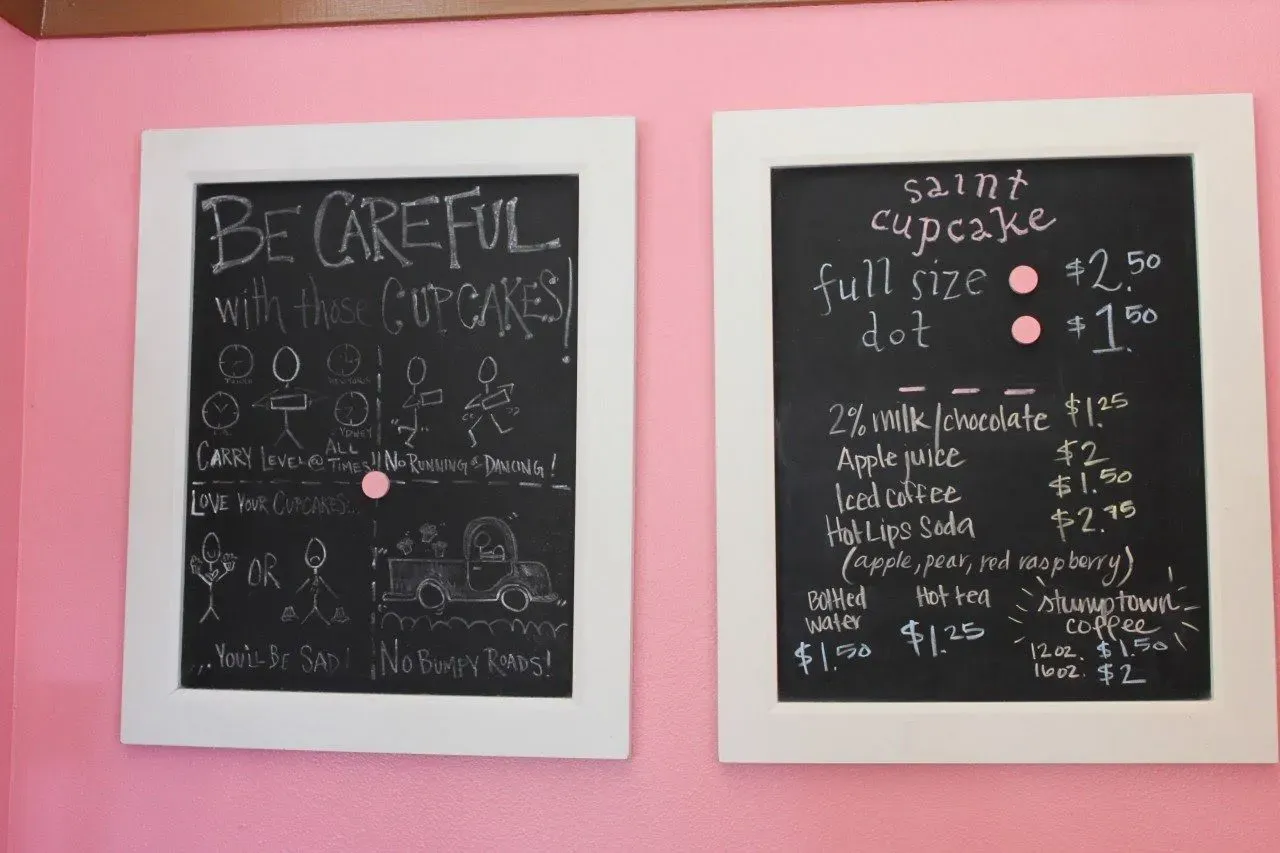 BE CAREFUL
with those CUPCAKES!
TOKYO
NEW YORK
L.A.
SYDNEY
CARRY LEVEL @ ALL TIMES!!
NO RUNNING or DANCING!
LOVE YOUR CUPCAKES...
OR
...YOU'LL BE SAD!
NO BUMPY ROADS!
saint
cupcake
full size $2.50
dot $1.50
2% milk/chocolate $1.25
Apple juice $2
Iced coffee $1.50
Hot Lips Soda $2.75
(apple, pear, red raspberry)
Bottled
water
$1.50
Hot tea
$1.25
stumptown
coffee
12oz. $1.50
16oz. $2